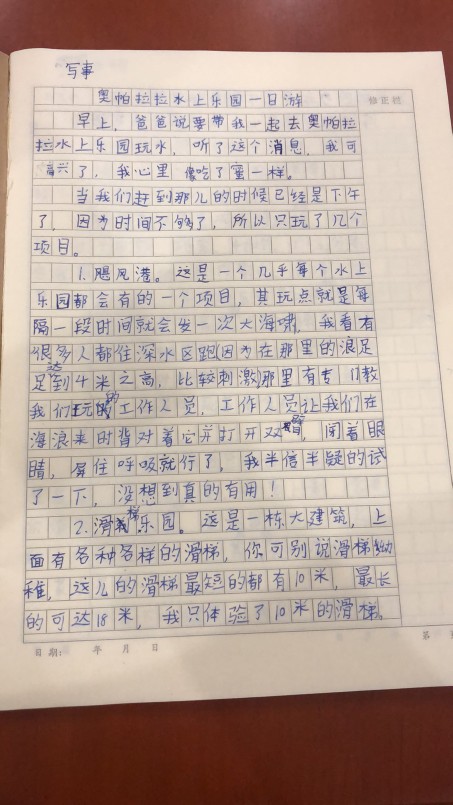 写事
奥帕拉拉水上乐园一日游
修正栏
早上，爸爸说要带我一起去奥帕拉
拉水上乐园玩水，听了这个消息，我可
高兴了，我心里像吃了蜜一样。
当我们赶到那儿的时候已经是下午
了，因为时间不够了，所以只玩了几个
项目。
1.飓风港。这是一个几乎每个水上
乐园都会有的一个项目，其玩点就是每
隔一段时间就会发一次大海啸，我看有
很多人都往深水区跑(因为在那里的浪足
足达到4米之高，比较刺激)那里有专门教
我们玩的工作人员，工作人员让我们在
海浪来时背对着它并打开双臂，闭着眼
睛，屏住呼吸就行了，我半信半疑的试
了一下，没想到真的有用！
2.滑梯乐园。这是一栋大建筑，上
面有各种各样的滑梯，你可别说滑梯幼
稚，这儿的滑梯最短的都有10米，最长
的可达18米，我只体验了10米的滑梯。
日期： 年 月 日
第